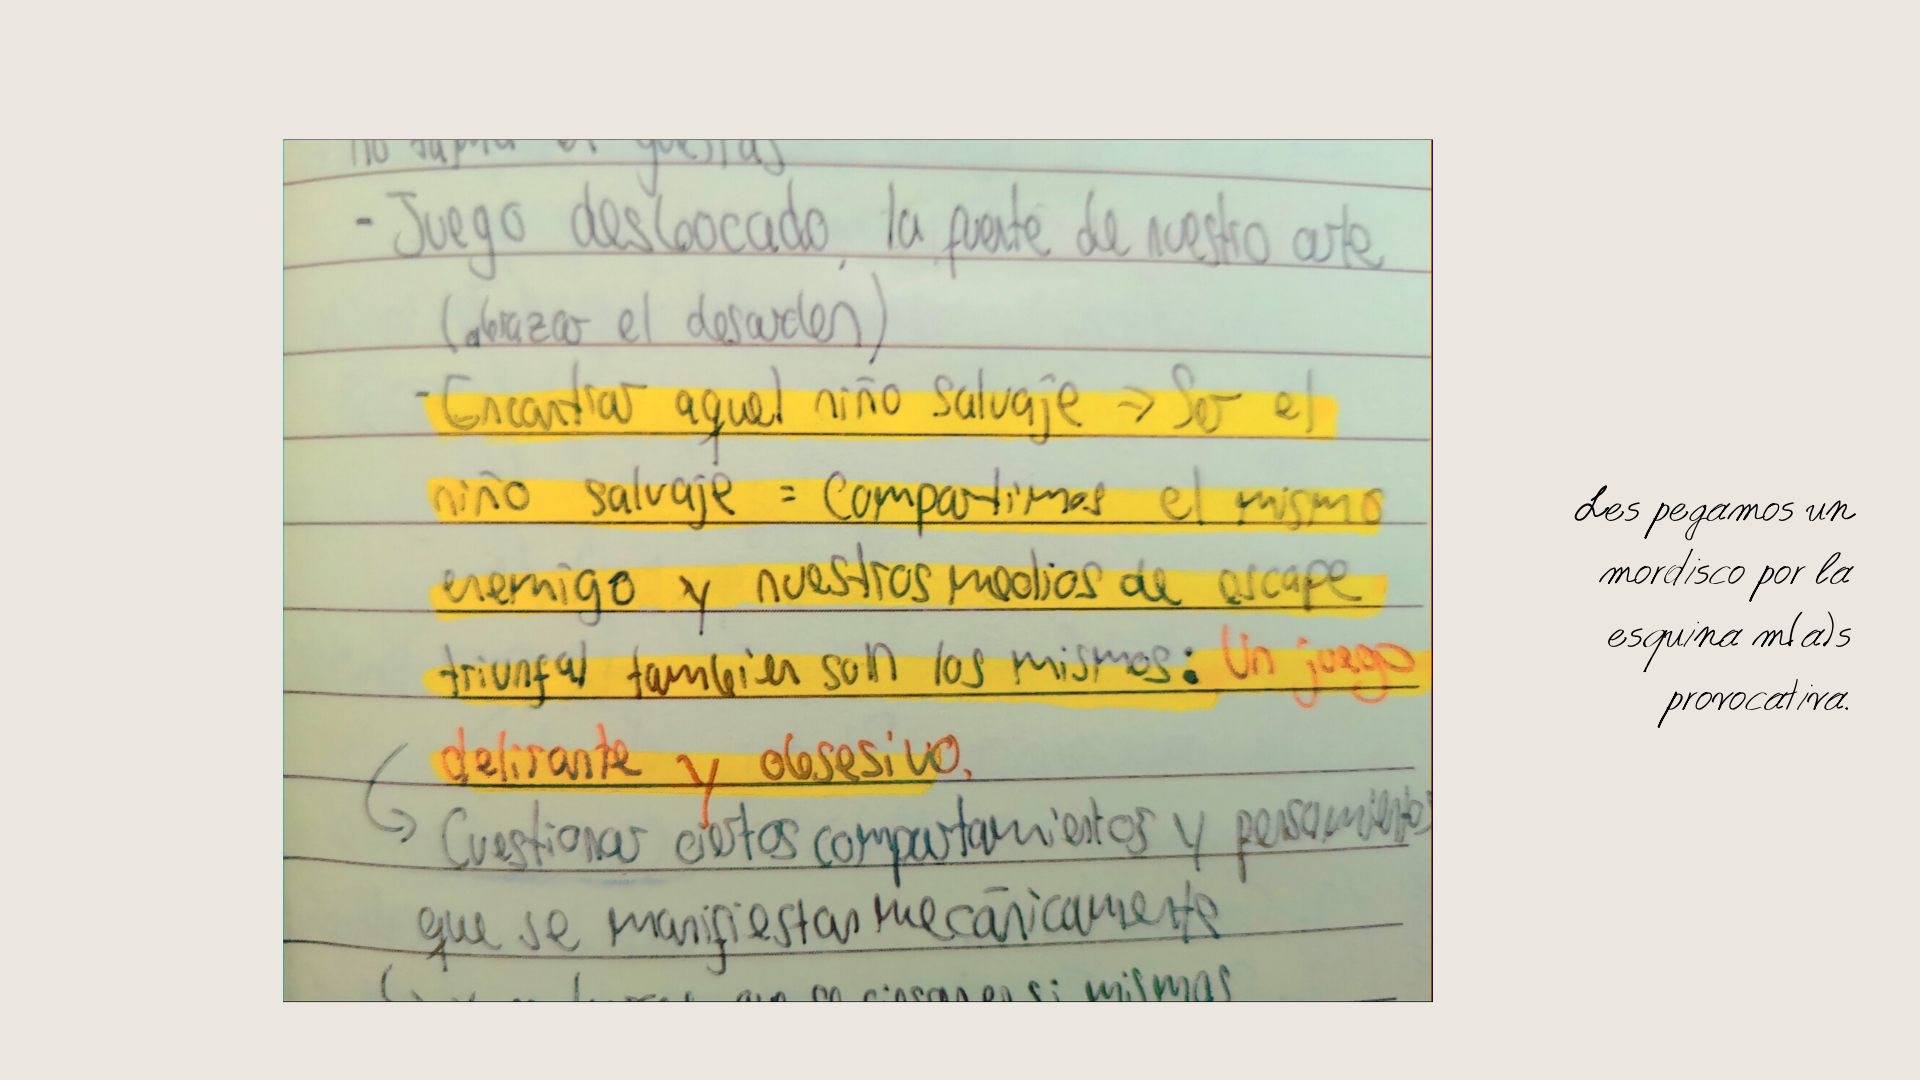 - Juego desbocado, la fuente de nuestro arte
(abrazar el desorden)
- Encontrar aquel niño salvaje → Ser el
niño salvaje = Compartimos el mismo
enemigo y nuestros medios de escape
triunfal tambien son los mismos: Un juego
delirante y obsesivo.
↳ Cuestionar ciertos comportamientos y pensamientos
que se manifiestan mecánicamente
mismas
Les pegamos un
mordisco por la
esquina m(a)s
provocativa.